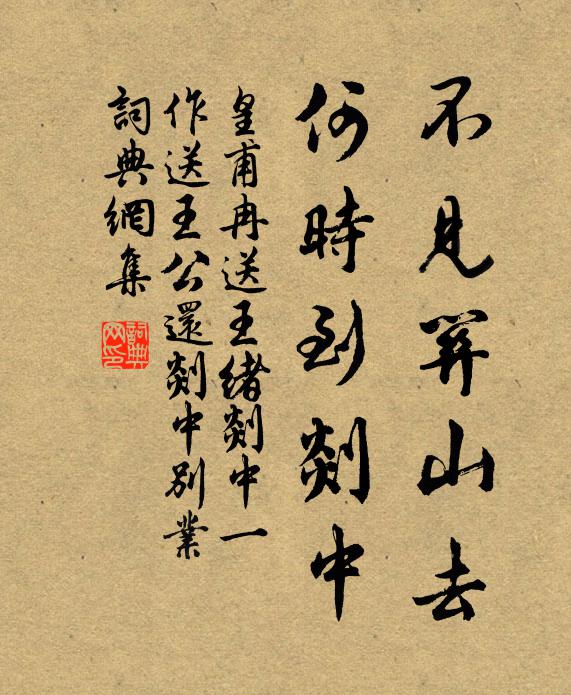 不見關山去
何時到剡中
皇甫冉送王緒剡中一
作送王公還剡中別業
詞典網集
詞典
网印